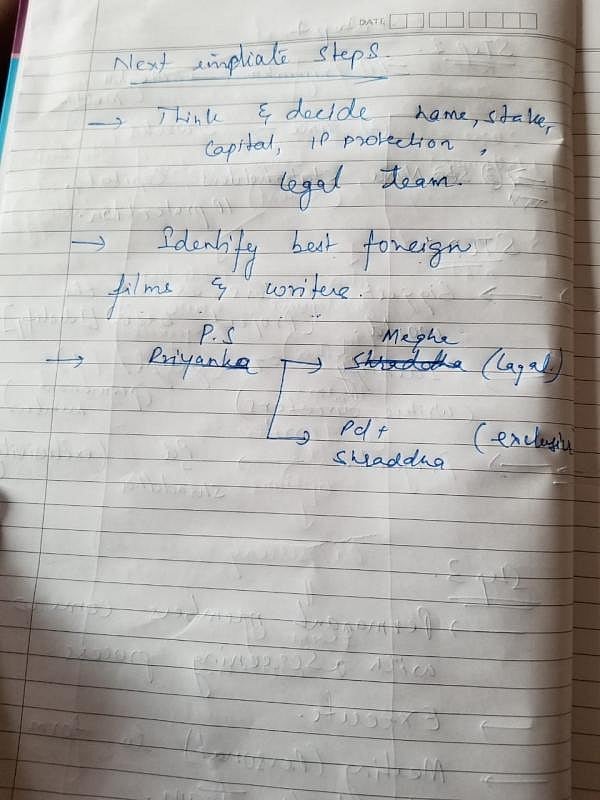 DATE
Next impliate steps
→ Think & decide name, stake,
capital, IP protection,
legal team.
→ Identify best foreign
films & writers.
P.S Megha
→ Priyanka → Shraddha (Legal.)
→ Pd + (exclusiv
Shraddha